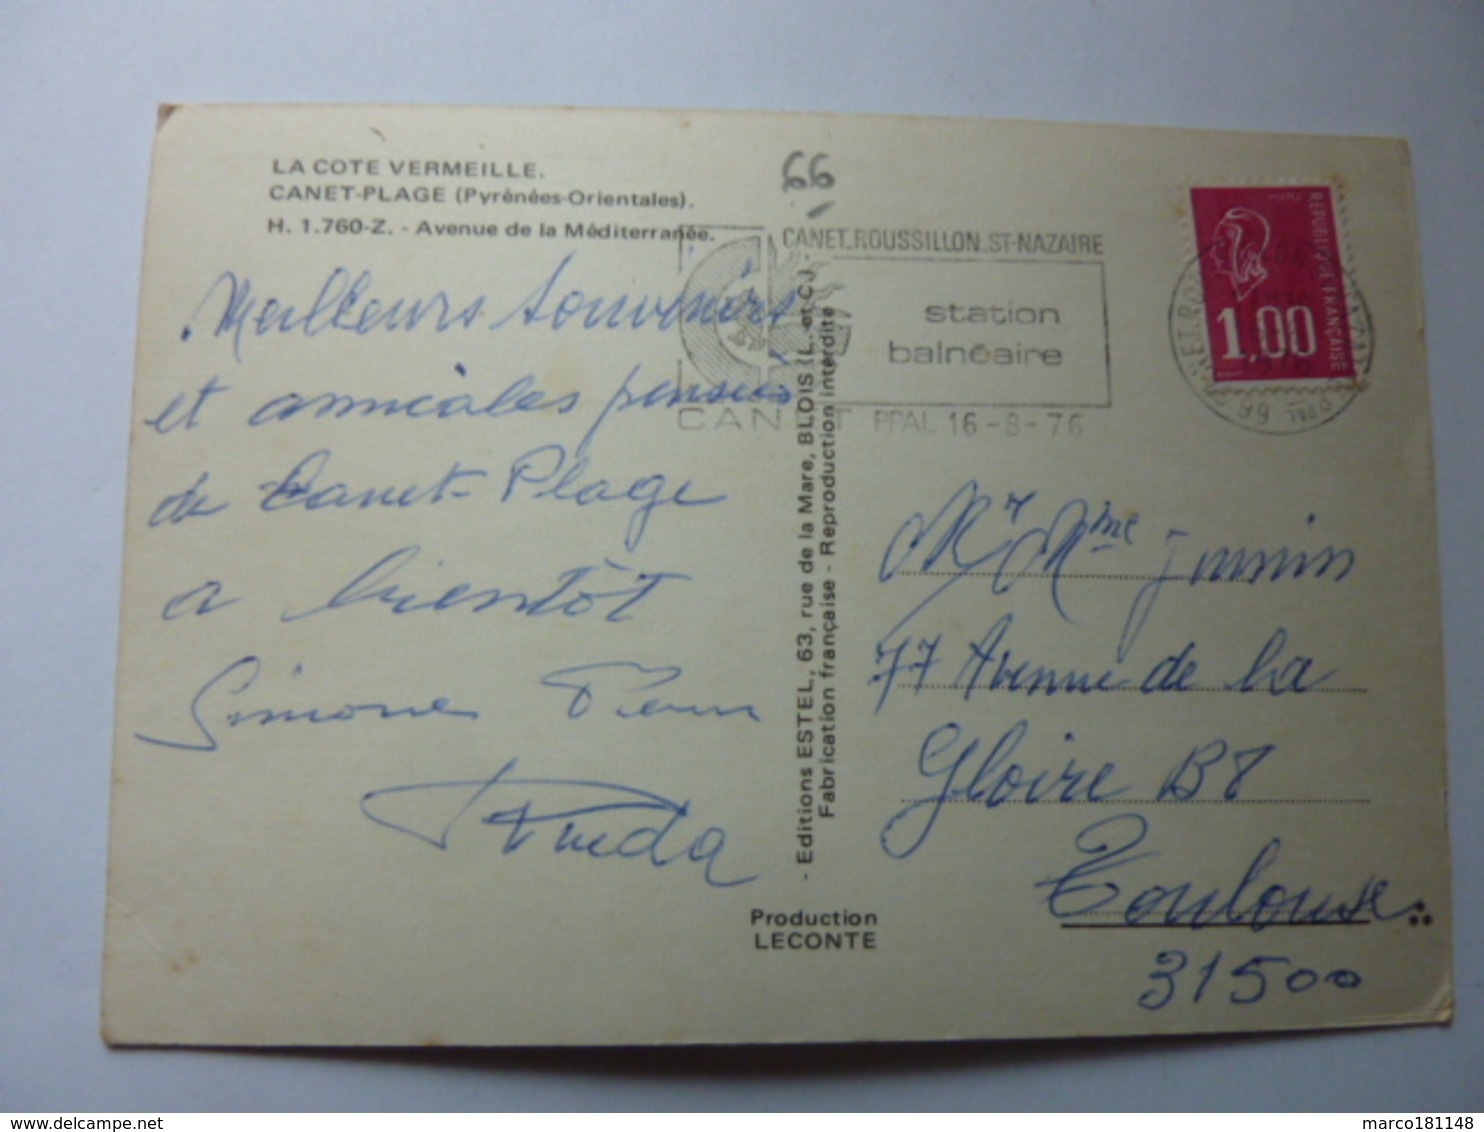 LA COTE VERMEILLE.
CANET-PLAGE (Pyrénées-Orientales).
H. 1.760-Z. - Avenue de la Méditerranée.
66
CANET.ROUSSILLON.ST-NAZAIRE
station
balnéaire
CANET PPAL 16-8-76
REPUBLIQUE FRANÇAISE
1,00
Meilleurs souvenirs
et amicales pensées
de Canet-Plage
a bientôt
Simone
- Editions ESTEL, 63, rue de la Mare, BLOIS (L.-et-C.)
Fabrication française - Reproduction interdite
Production
LECONTE
Mr Mme Jamin
77 Avenue de la
Gloire B8
Toulouse
31500
marco181148